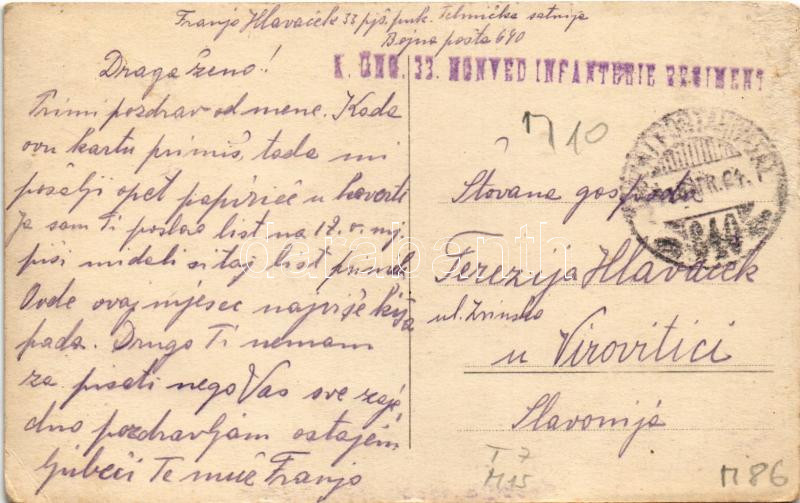 Franjo Hlavaček 33 pješ. puk. Tehnička satnija
Bojna pošta 640
K. UNG. 33. HONVED INFANTERIE REGIMENT
Draga ženo!
Primi pozdrav od mene. Kada
ovu kartu primiš, tada mi
pošalji opet papiriće u koverti
Ja sam Ti poslao list na 12. o. mj.
piši mi dali si taj list
Ovde ovaj mjesec najviše kiša
pada. Drugo Ti nemam
za pisati nego Vas sve zaje
dno pozdravljam ostajem
ljubeći Te muž Franjo
M 10
640
Štovana gospodja
Terezija Hlavaček
ul. Zrinska
u Virovitici
Slavonija
T 7
M15
M 86
darabanth